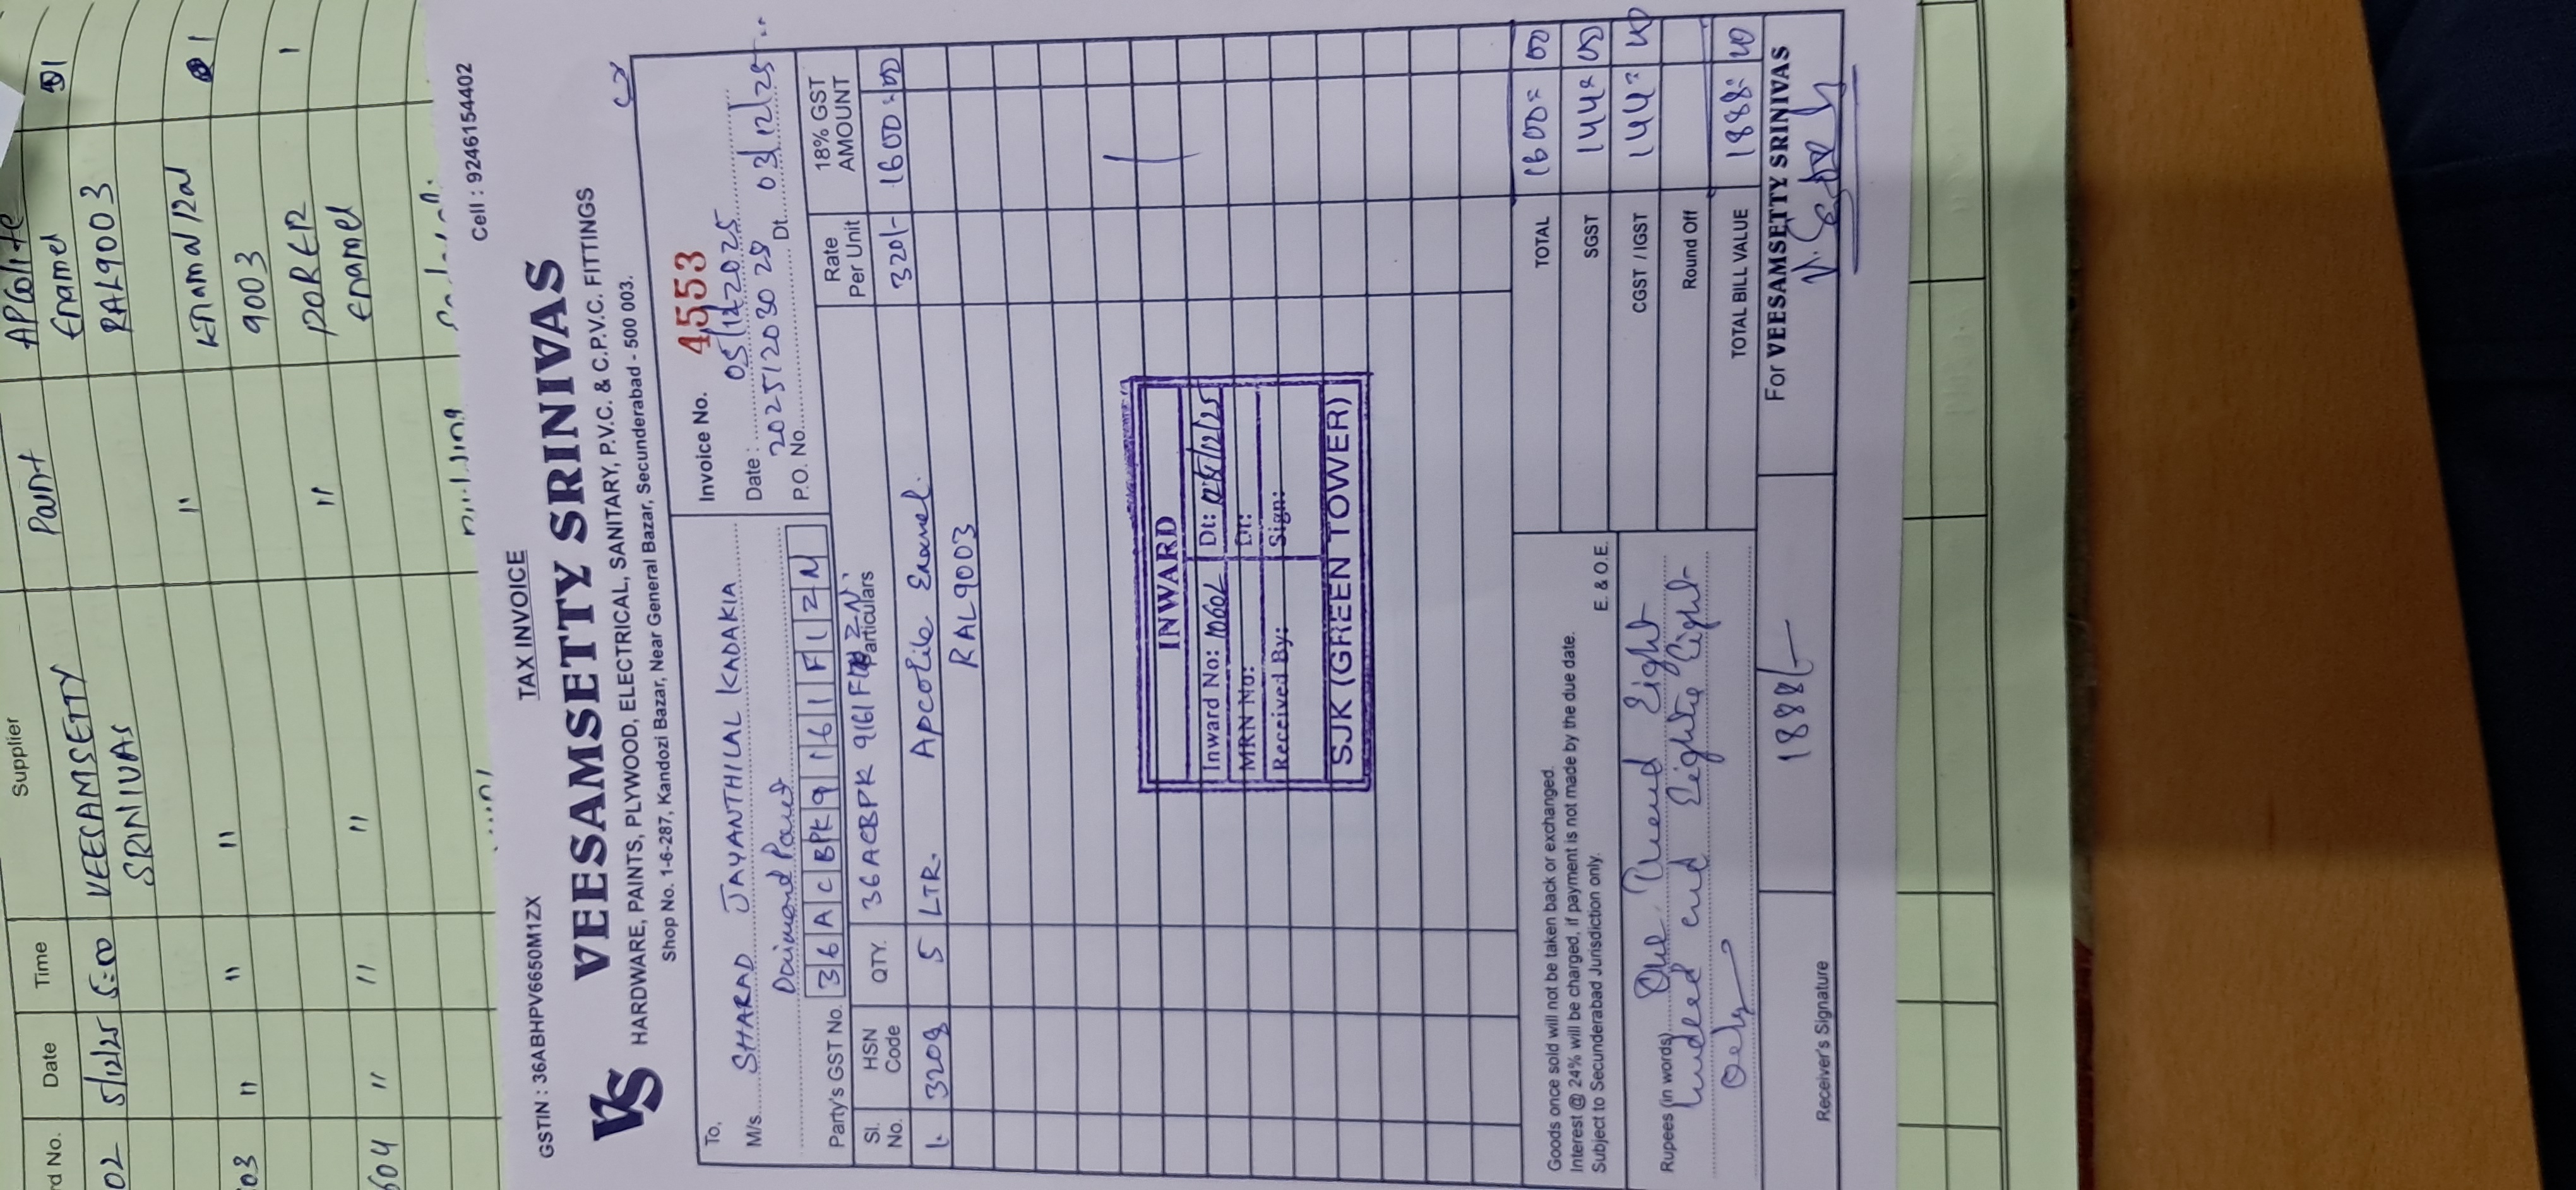 Supplier
rd No.
Date
Time
02 5/12/25 5:00 VEESAMSETTY
SRINIVAS
Paint
APCOlite
Enamel
RAL9003
03 " " " "
9003
604 " " " "
PORER
Enamel
GSTIN : 36ABHPV6650M1ZX
TAX INVOICE
Cell : 9246154402
VS
VEESAMSETTY SRINIVAS
HARDWARE, PAINTS, PLYWOOD, ELECTRICAL, SANITARY, P.V.C. & C.P.V.C. FITTINGS
Shop No. 1-6-287, Kandozi Bazar, Near General Bazar, Secunderabad - 500 003.
To,
M/s. SHARAD JAYANTHILAL KADAKIA
Party's GST No. 36ACBPK9161F1ZN
Invoice No. 4553
Date : 05/12/2025
P.O. No. 20251203028 Dt. 03/12/25
Sl. No.
HSN Code
QTY.
Particulars
Rate Per Unit
18% GST AMOUNT
36ACBPK 9161F ZN
1. 3208 5 LTR. Apcolite Enamel. 320/- 1600=00
RAL9003
INWARD
Inward No: 10602 Dt: 05/12/25
MRN No: Dt:
Received By: Sign:
SJK (GREEN TOWER)
Goods once sold will not be taken back or exchanged.
Interest @ 24% will be charged, if payment is not made by the due date.
Subject to Secunderabad Jurisdiction only.
E. & O.E.
TOTAL 1600= 00
SGST 144= 00
CGST / IGST 144= 00
Round Off
TOTAL BILL VALUE 1888= 00
Rupees (in words) One Thousand Eight
Hundred and Eighty Eight
Only
1888/-
Receiver's Signature
For VEESAMSETTY SRINIVAS